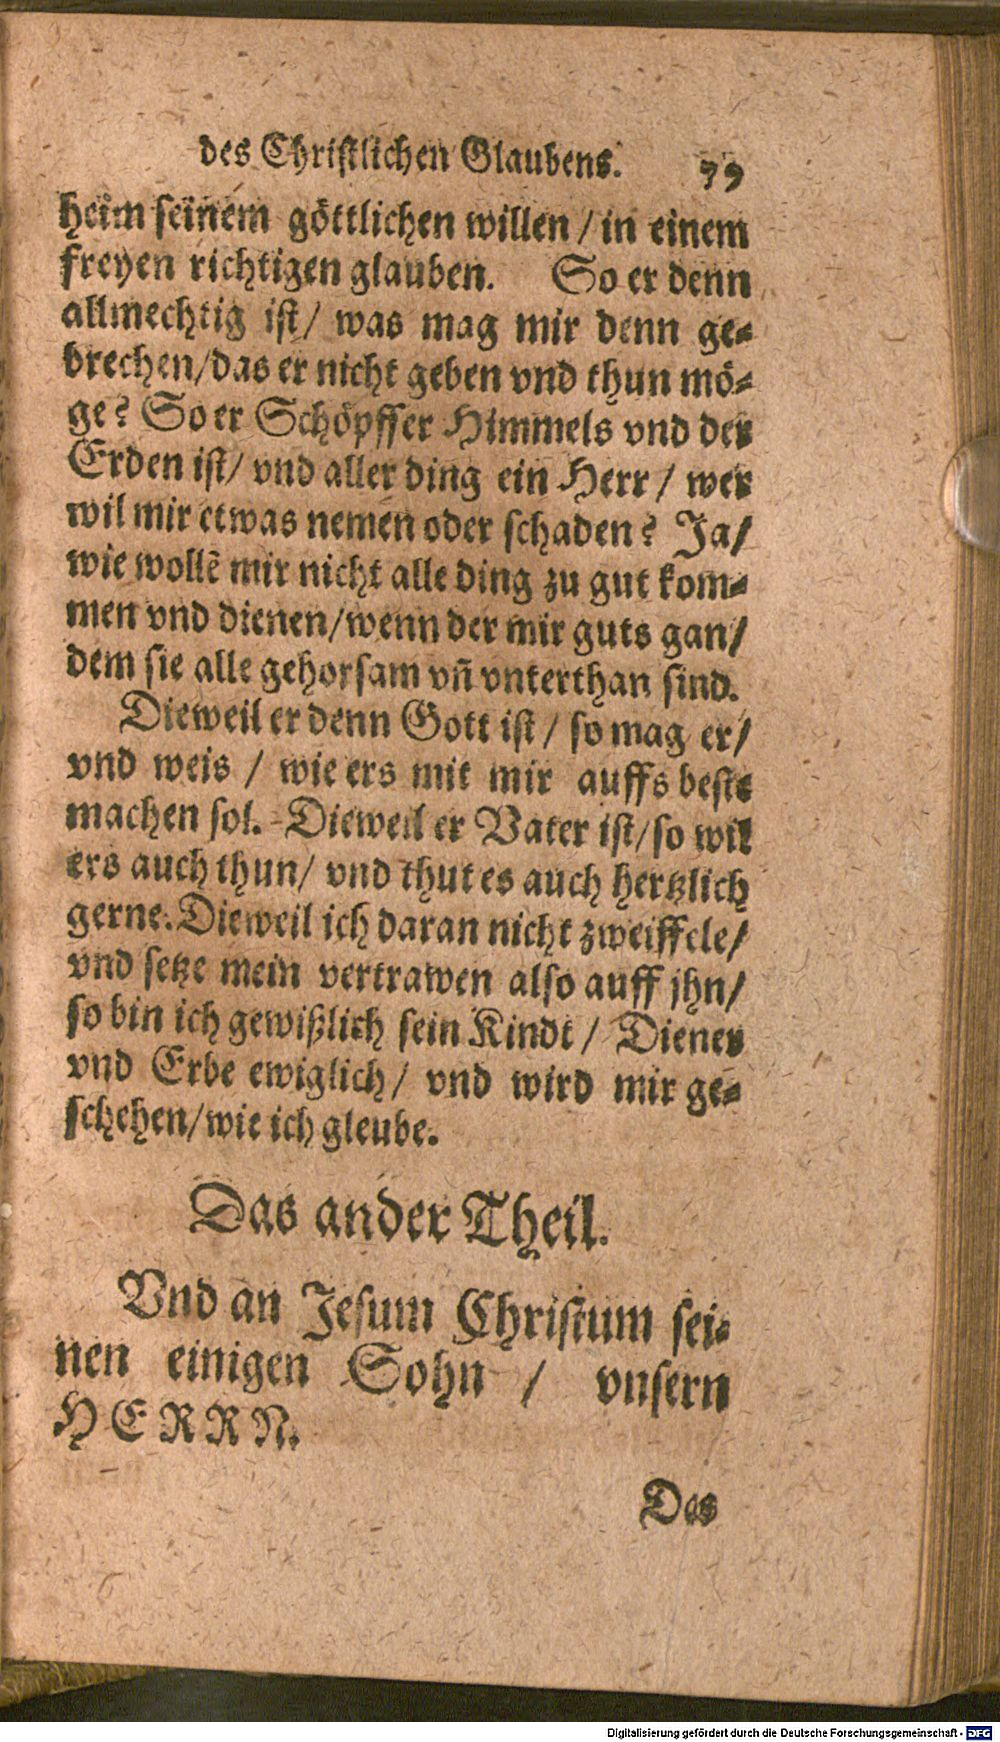 des Christlichen Glaubens. 79
heim seinem göttlichen willen / in einem
freyen richtigen glauben. So er denn
allmechtig ist / was mag mir denn ge-
brechen / das er nicht geben vnd thun mö-
ge? So er Schöpffer Himmels vnd der
Erden ist / vnd aller ding ein Herr / wer
wil mir etwas nemen oder schaden? Ja /
wie wollẽ mir nicht alle ding zu gut kom-
men vnd dienen / wenn der mir guts gan /
dem sie alle gehorsam vñ vnterthan sind.
Dieweil er denn Gott ist / so mag er /
vnd weis / wie ers mit mir auffs beste
machen sol. Dieweil er Vater ist / so wil
ers auch thun / vnd thut es auch hertzlich
gerne. Dieweil ich daran nicht zweiffele /
vnd setze mein vertrawen also auff jhn /
so bin ich gewißlich sein Kindt / Diener
vnd Erbe ewiglich / vnd wird mir ge-
schehen / wie ich gleube.
Das ander Theil.
Vnd an Jesum Christum sei-
nen einigen Sohn / vnsern
HERRN.
Das
Digitalisierung gefördert durch die Deutsche Forschungsgemeinschaft - DFG